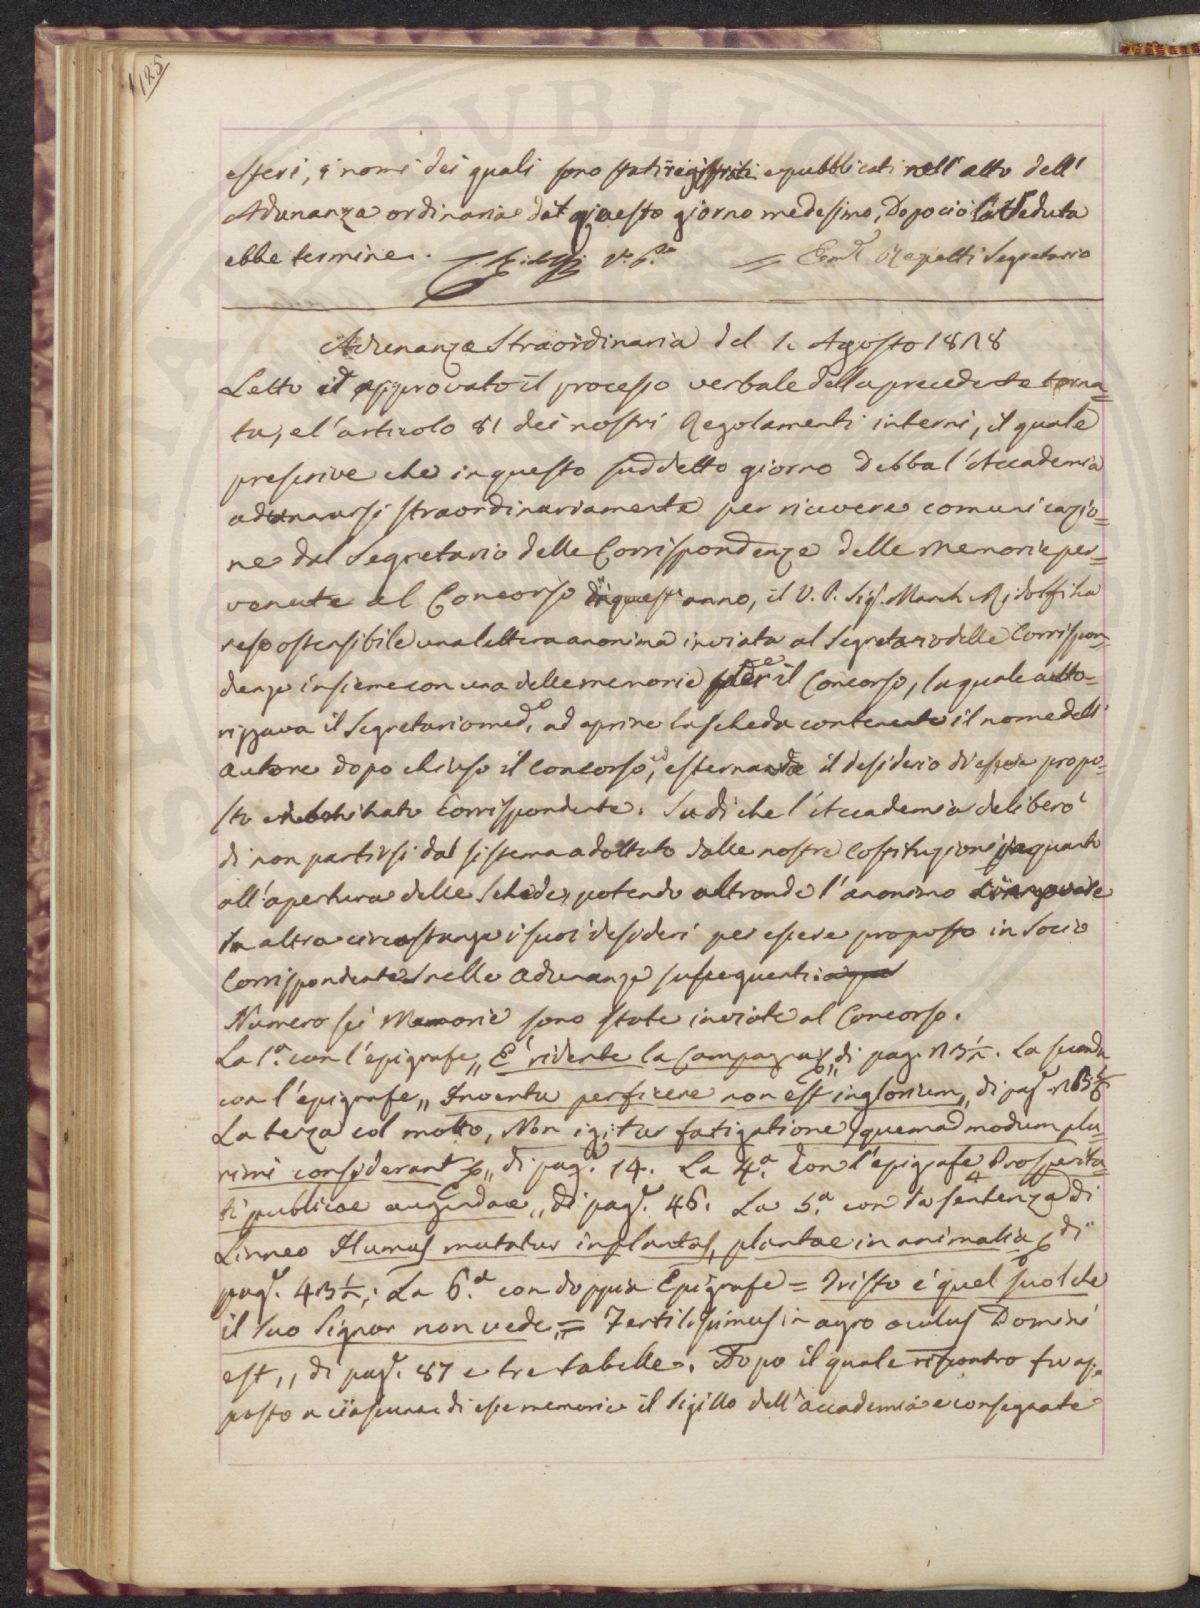 125
esteri, i nomi dei quali sono stati registrati e pubblicati nell' atto dell'
Adunanza ordinaria di questo giorno medesimo. Dopo ciò la Seduta
ebbe termine. Ridolfi V. P. = Eml. Repetti Segretario
Adunanza Straordinaria del 1. Agosto 1828
Letto ed approvato il processo verbale della precedente torna=
ta, e l'articolo 81 dei nostri Regolamenti interni, il quale
prescrive che in questo suddetto giorno debba l'Accademia
adunarsi straordinariamente per ricevere comunicazio=
ne dal Segretario delle Corrispondenze delle Memorie per=
venute al Concorso di quest' anno, il V. P. Sig. March. Ridolfi ha
reso ostensibile una lettera anonima inviata al Segretario delle Corrispon=
denze insieme con una delle memorie per il Concorso, la quale auto=
rizzava il Segretario med.o ad aprire la scheda contenente il nome dell'
autore dopo chiuso il concorso, ed esternando il desiderio di esser propo=
sto Corrispondente. Su di che l'Accademia deliberò
di non partirsi dal sistema adottato dalle nostre Costituzioni in quanto
all'apertura delle Schede, potendo altronde l'anonimo rinnovare
in altra circostanza i suoi desideri per essere proposto in Socio
Corrispondente nelle adunanze susseguenti
Numero sei Memorie sono state inviate al Concorso.
La 1.a con l'epigrafe „ E' ridente la Campagna &„ di pag. 23½. La seconda
con l'epigrafe „ Inventa perficere non est inglorium „ di pag.
La terza col motto, Non igitur fatigatione, quemadmodum plu=
rimi considerant &„ di pag. 14. La 4.a con l'epigrafe Prosperita=
ti publicae augendae „ di pag. 46. La 5.a con la sentenza di
Linneo Humus mutatur in plantas, plantae in animalia & di
pag. 43½; La 6.a con doppia Epigrafe = Tristo è quel suol che
il suo Signor non vede, = Fertilissimus in agro oculus Domini
est „ di pag. 87 e tre tabelle. Dopo il quale riscontro fu ap=
posto a ciascuna di esse memorie il Sigillo dell'Accademia e consegnate